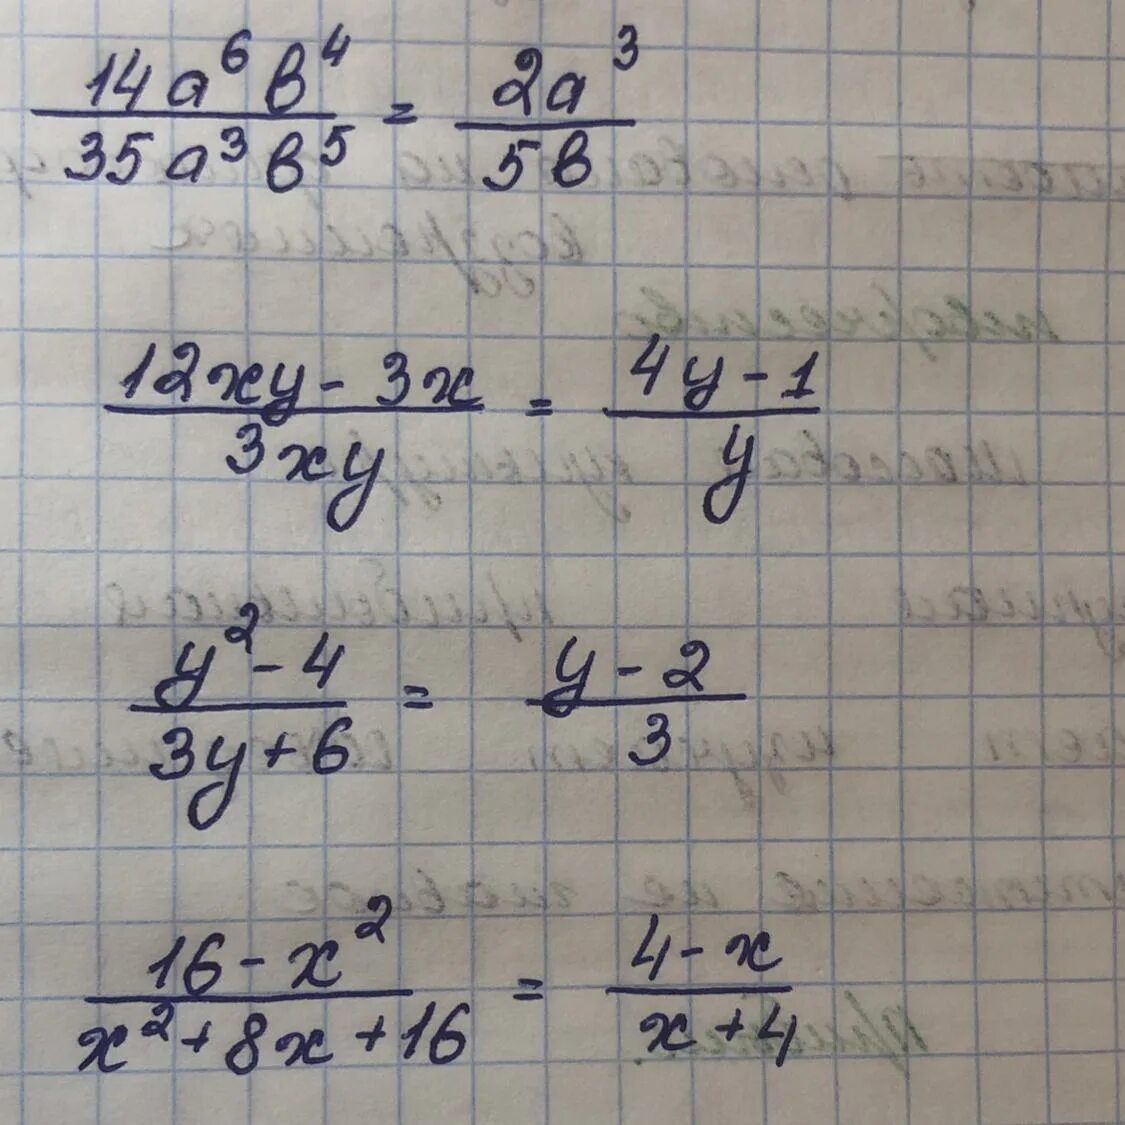 14a⁶b⁴/35a³b⁵ = 2a³/5b
12xy - 3x/3xy = 4y - 1/y
y² - 4/3y + 6 = y - 2/3
16 - x²/x² + 8x + 16 = 4 - x/x + 4